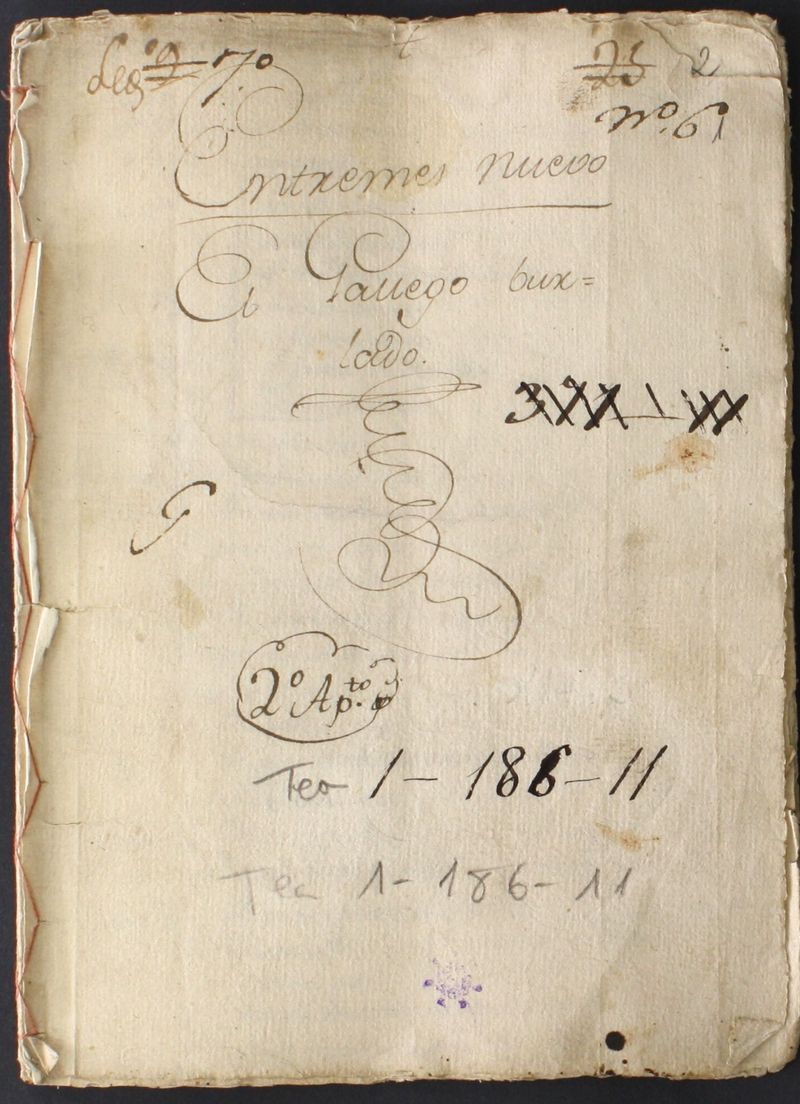 Leg.º 9 7º
25 2
N.º 61
Entremes nuevo
El Gallego bur=
lado.
2º Ap.to
Tea 1-186-11
Tea 1-186-11